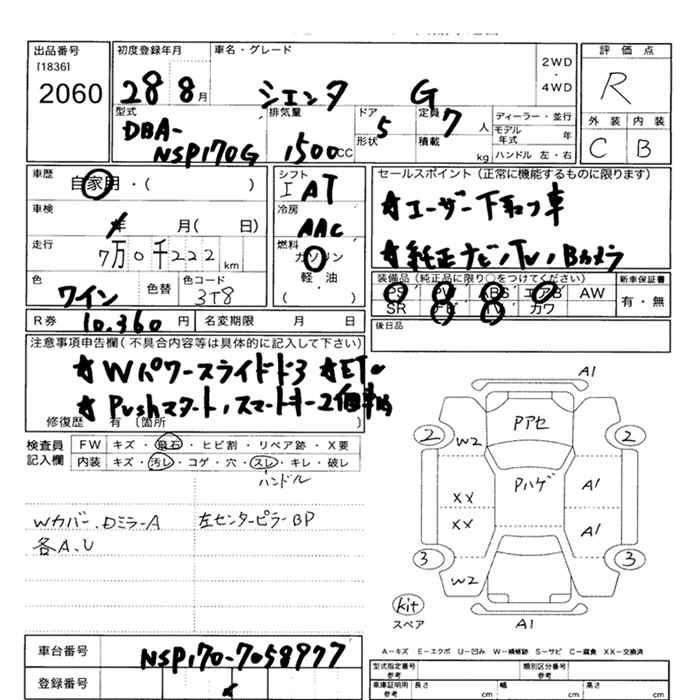 出品番号
[1836]
2060
初度登録年月
28 8月
車名・グレード
シエンタ G
2WD
・
4WD
評価点
R
外装 内装
C B
型式
DBA-
NSP170G
排気量
1500CC
ドア
形状
5
定員
7人
積載
kg
ディーラー・並行
モデル
年式 年
ハンドル 左・右
車歴
自家用・( )
車検
年 月( 日)
走行
7万0千222km
色
ワイン
色替
色コード
3T8
シフト
I AT
冷房
AAC
燃料
ガソリン
軽油
( ・ )
セールスポイント(正常に機能するものに限ります)
★ユーザー下取り車
★純正ナビ/TV/Bカメラ
装備品(純正品に限り○をつけてください)
PS PW ABS エアB AW
SR ナビ TV カワ
新車保証書
有・無
R券 10,360円
名変期限 月 日
後日品
注意事項申告欄(不具合内容等は具体的に記入して下さい)
★Wパワースライドドア ★ETC
★Pushスタート/スマートキー2個
修復歴 有(箇所
検査員
記入欄
FW キズ・飛石・ヒビ割・リペア跡・X要
内装 キズ・汚レ・コゲ・穴・スレ・キレ・破レ
ハンドル
Wカバー、Dミラー A
各A、U
左センターピラー BP
A1
Pアセ
2
W2
2
Pハゲ
XX
A1
XX
A1
3
W2
3
kit
スペア
A1
A-キズ E-エクボ U-凹み W-補修跡 S-サビ C-腐食 XX-交換済
車台番号
NSP170-7058977
登録番号
型式指定番号
参考
類別区分番号
参考
車庫証明用
参考
長さ cm
幅 cm
高さ cm